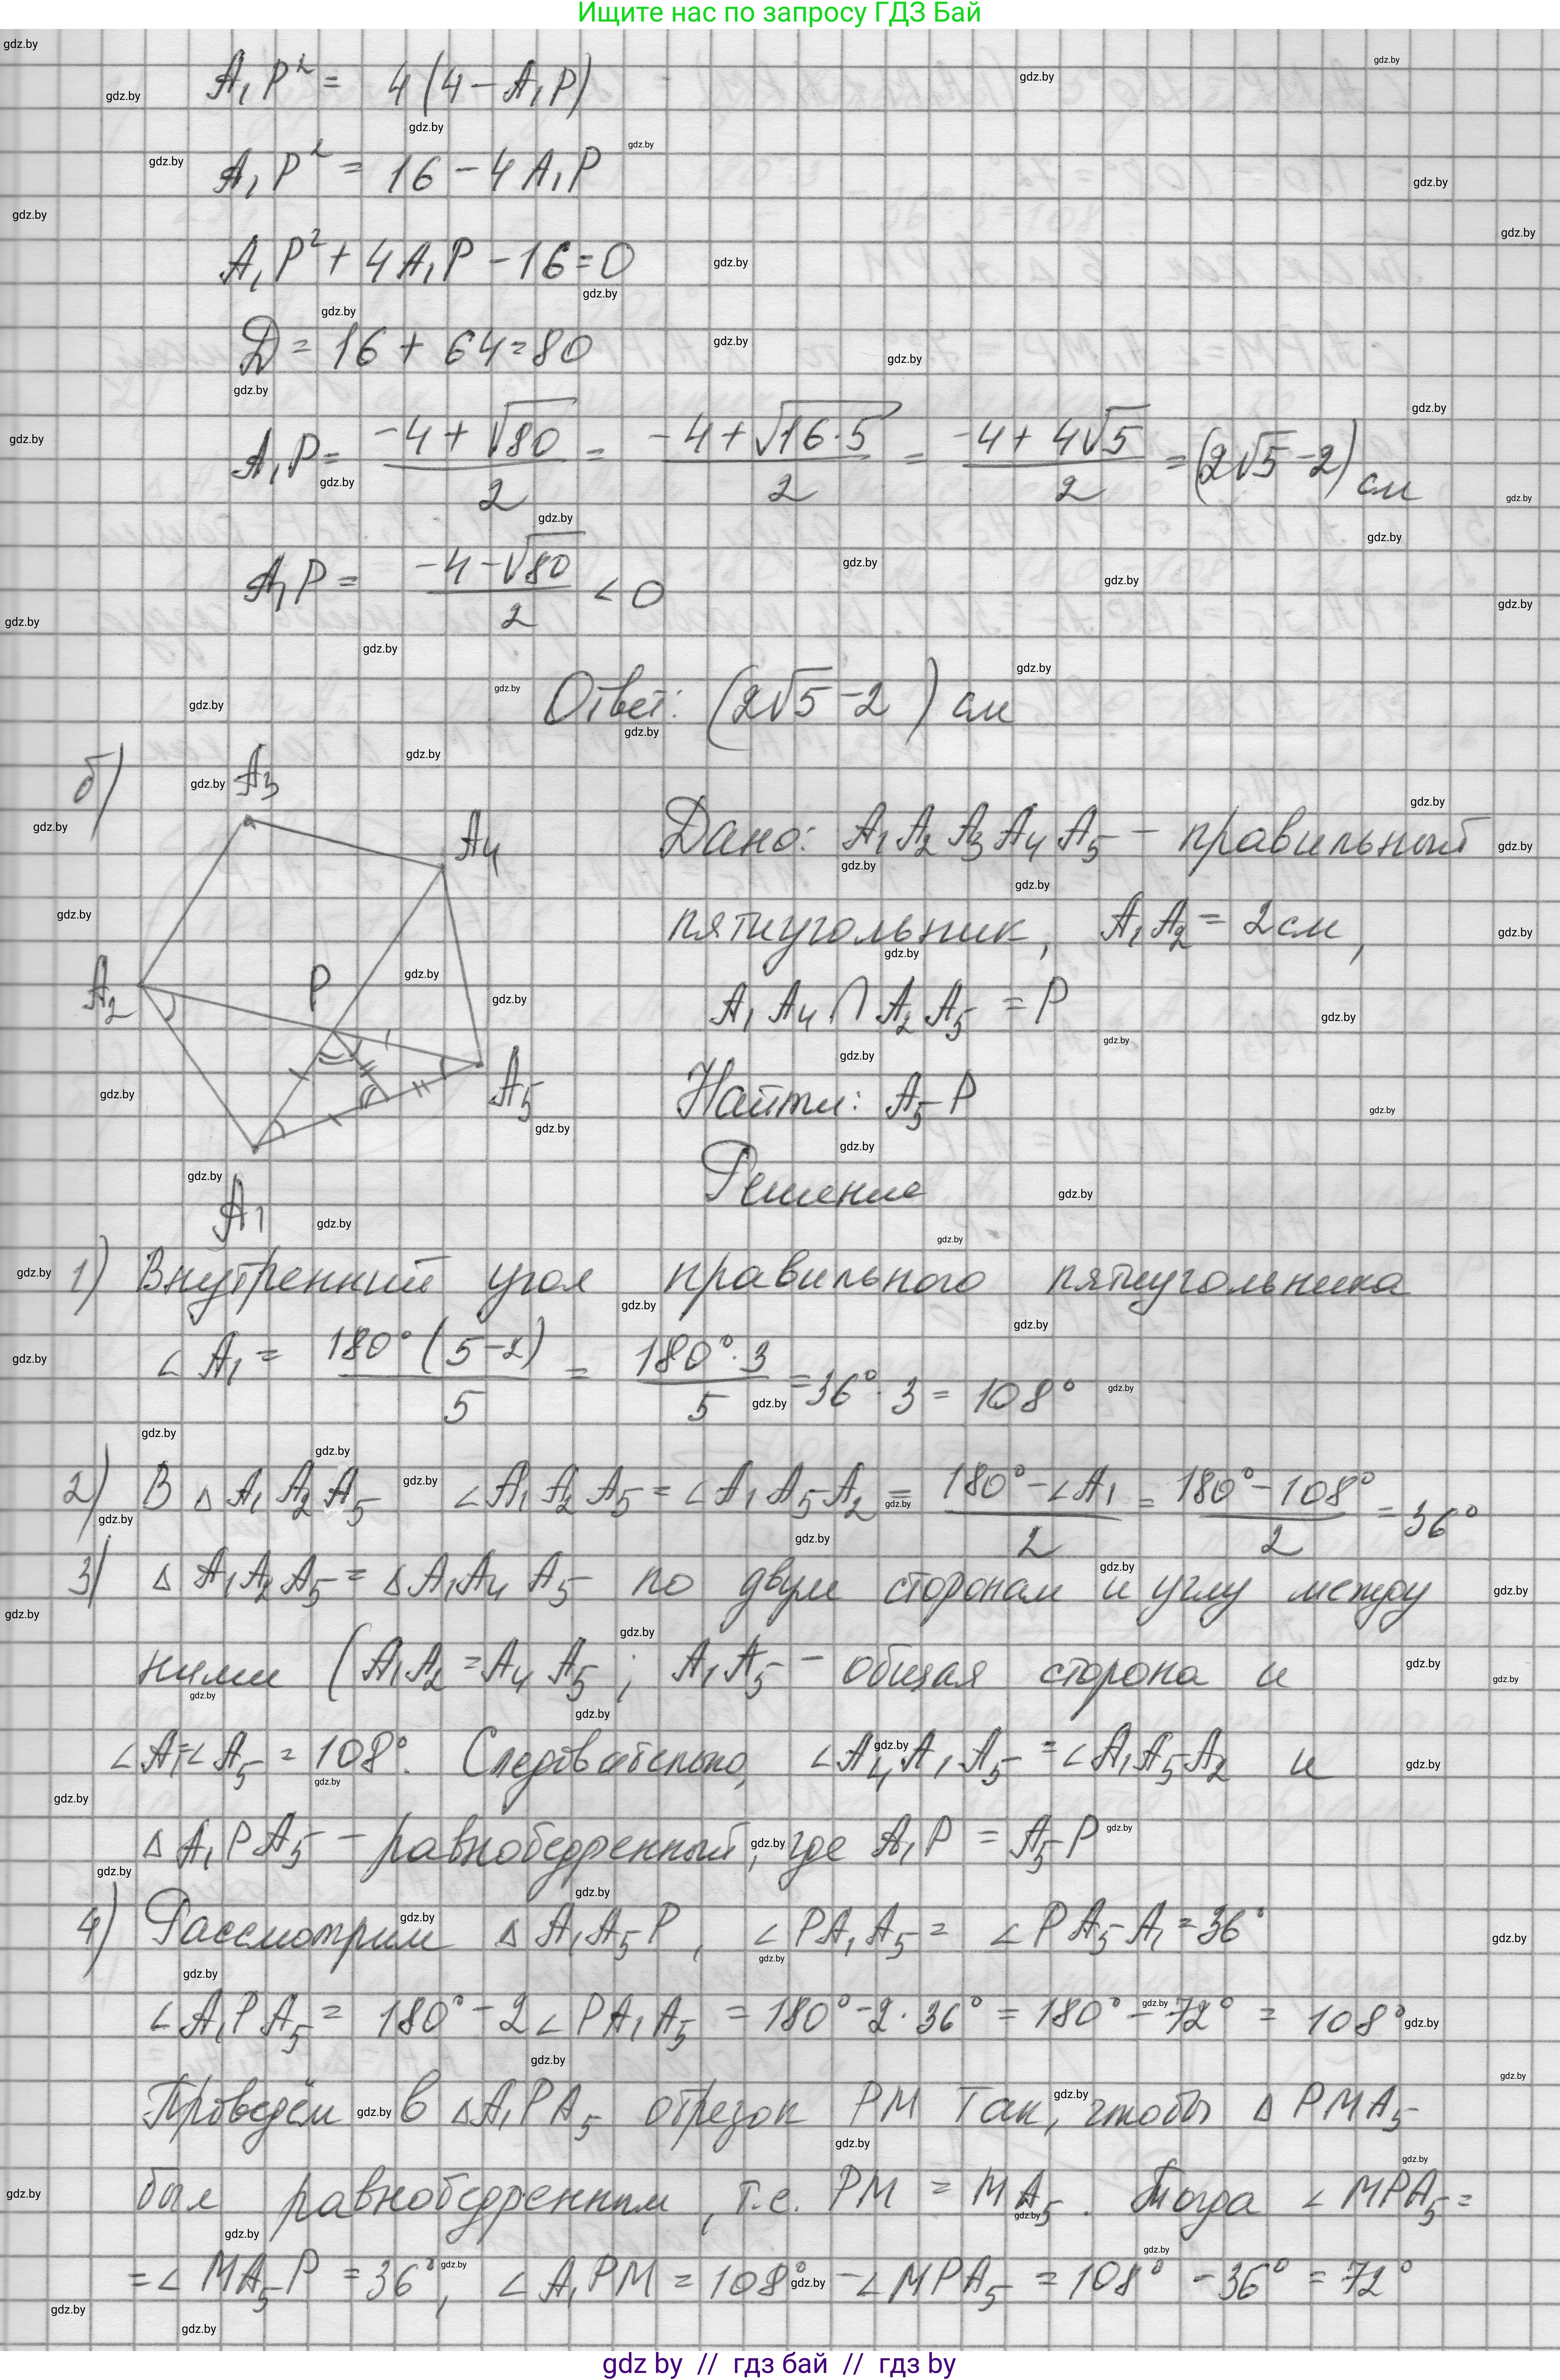 Ищите нас по запросу ГДЗ Бай
A₁P² = 4(4 − A₁P)
A₁P² = 16 − 4A₁P
A₁P² + 4A₁P − 16 = 0
D = 16 + 64 = 80
A₁P = (−4 + √80)/2 = (−4 + √(16·5))/2 = (−4 + 4√5)/2 = (2√5 − 2) см
A₁P = (−4 − √80)/2 < 0
Ответ: (2√5 − 2) см
б)
A₃
A₄
A₂
P
A₅
A₁
Дано: A₁A₂A₃A₄A₅ – правильный
пятиугольник, A₁A₂ = 2см,
A₁A₄ ∩ A₂A₅ = P
Найти: A₅P
Решение
1) Внутренний угол правильного пятиугольника
∠A₁ = 180°(5−2)/5 = 180°·3/5 = 36°·3 = 108°
2) В △A₁A₂A₅ ∠A₁A₂A₅ = ∠A₁A₅A₂ = (180° − ∠A₁)/2 = (180° − 108°)/2 = 36°
3) △A₁A₂A₅ = △A₁A₄A₅ по двум сторонам и углу между
ними (A₁A₂ = A₄A₅; A₁A₅ – общая сторона и
∠A₁=∠A₅ = 108°. Следовательно, ∠A₄A₁A₅ = ∠A₁A₅A₂ и
△A₁PA₅ – равнобедренный, где A₁P = A₅P
4) Рассмотрим △A₁A₅P, ∠PA₁A₅ = ∠PA₅A₁ = 36°
∠A₁PA₅ = 180° − 2∠PA₁A₅ = 180° − 2·36° = 180° − 72° = 108°
Проведём в △A₁PA₅ отрезок PM так, чтобы △PMA₅
был равнобедренным, т.е. PM = MA₅. Тогда ∠MPA₅ =
= ∠MA₅P = 36°, ∠A₁PM = 108° − ∠MPA₅ = 108° − 36° = 72°
gdz by // гдз бай // гдз by